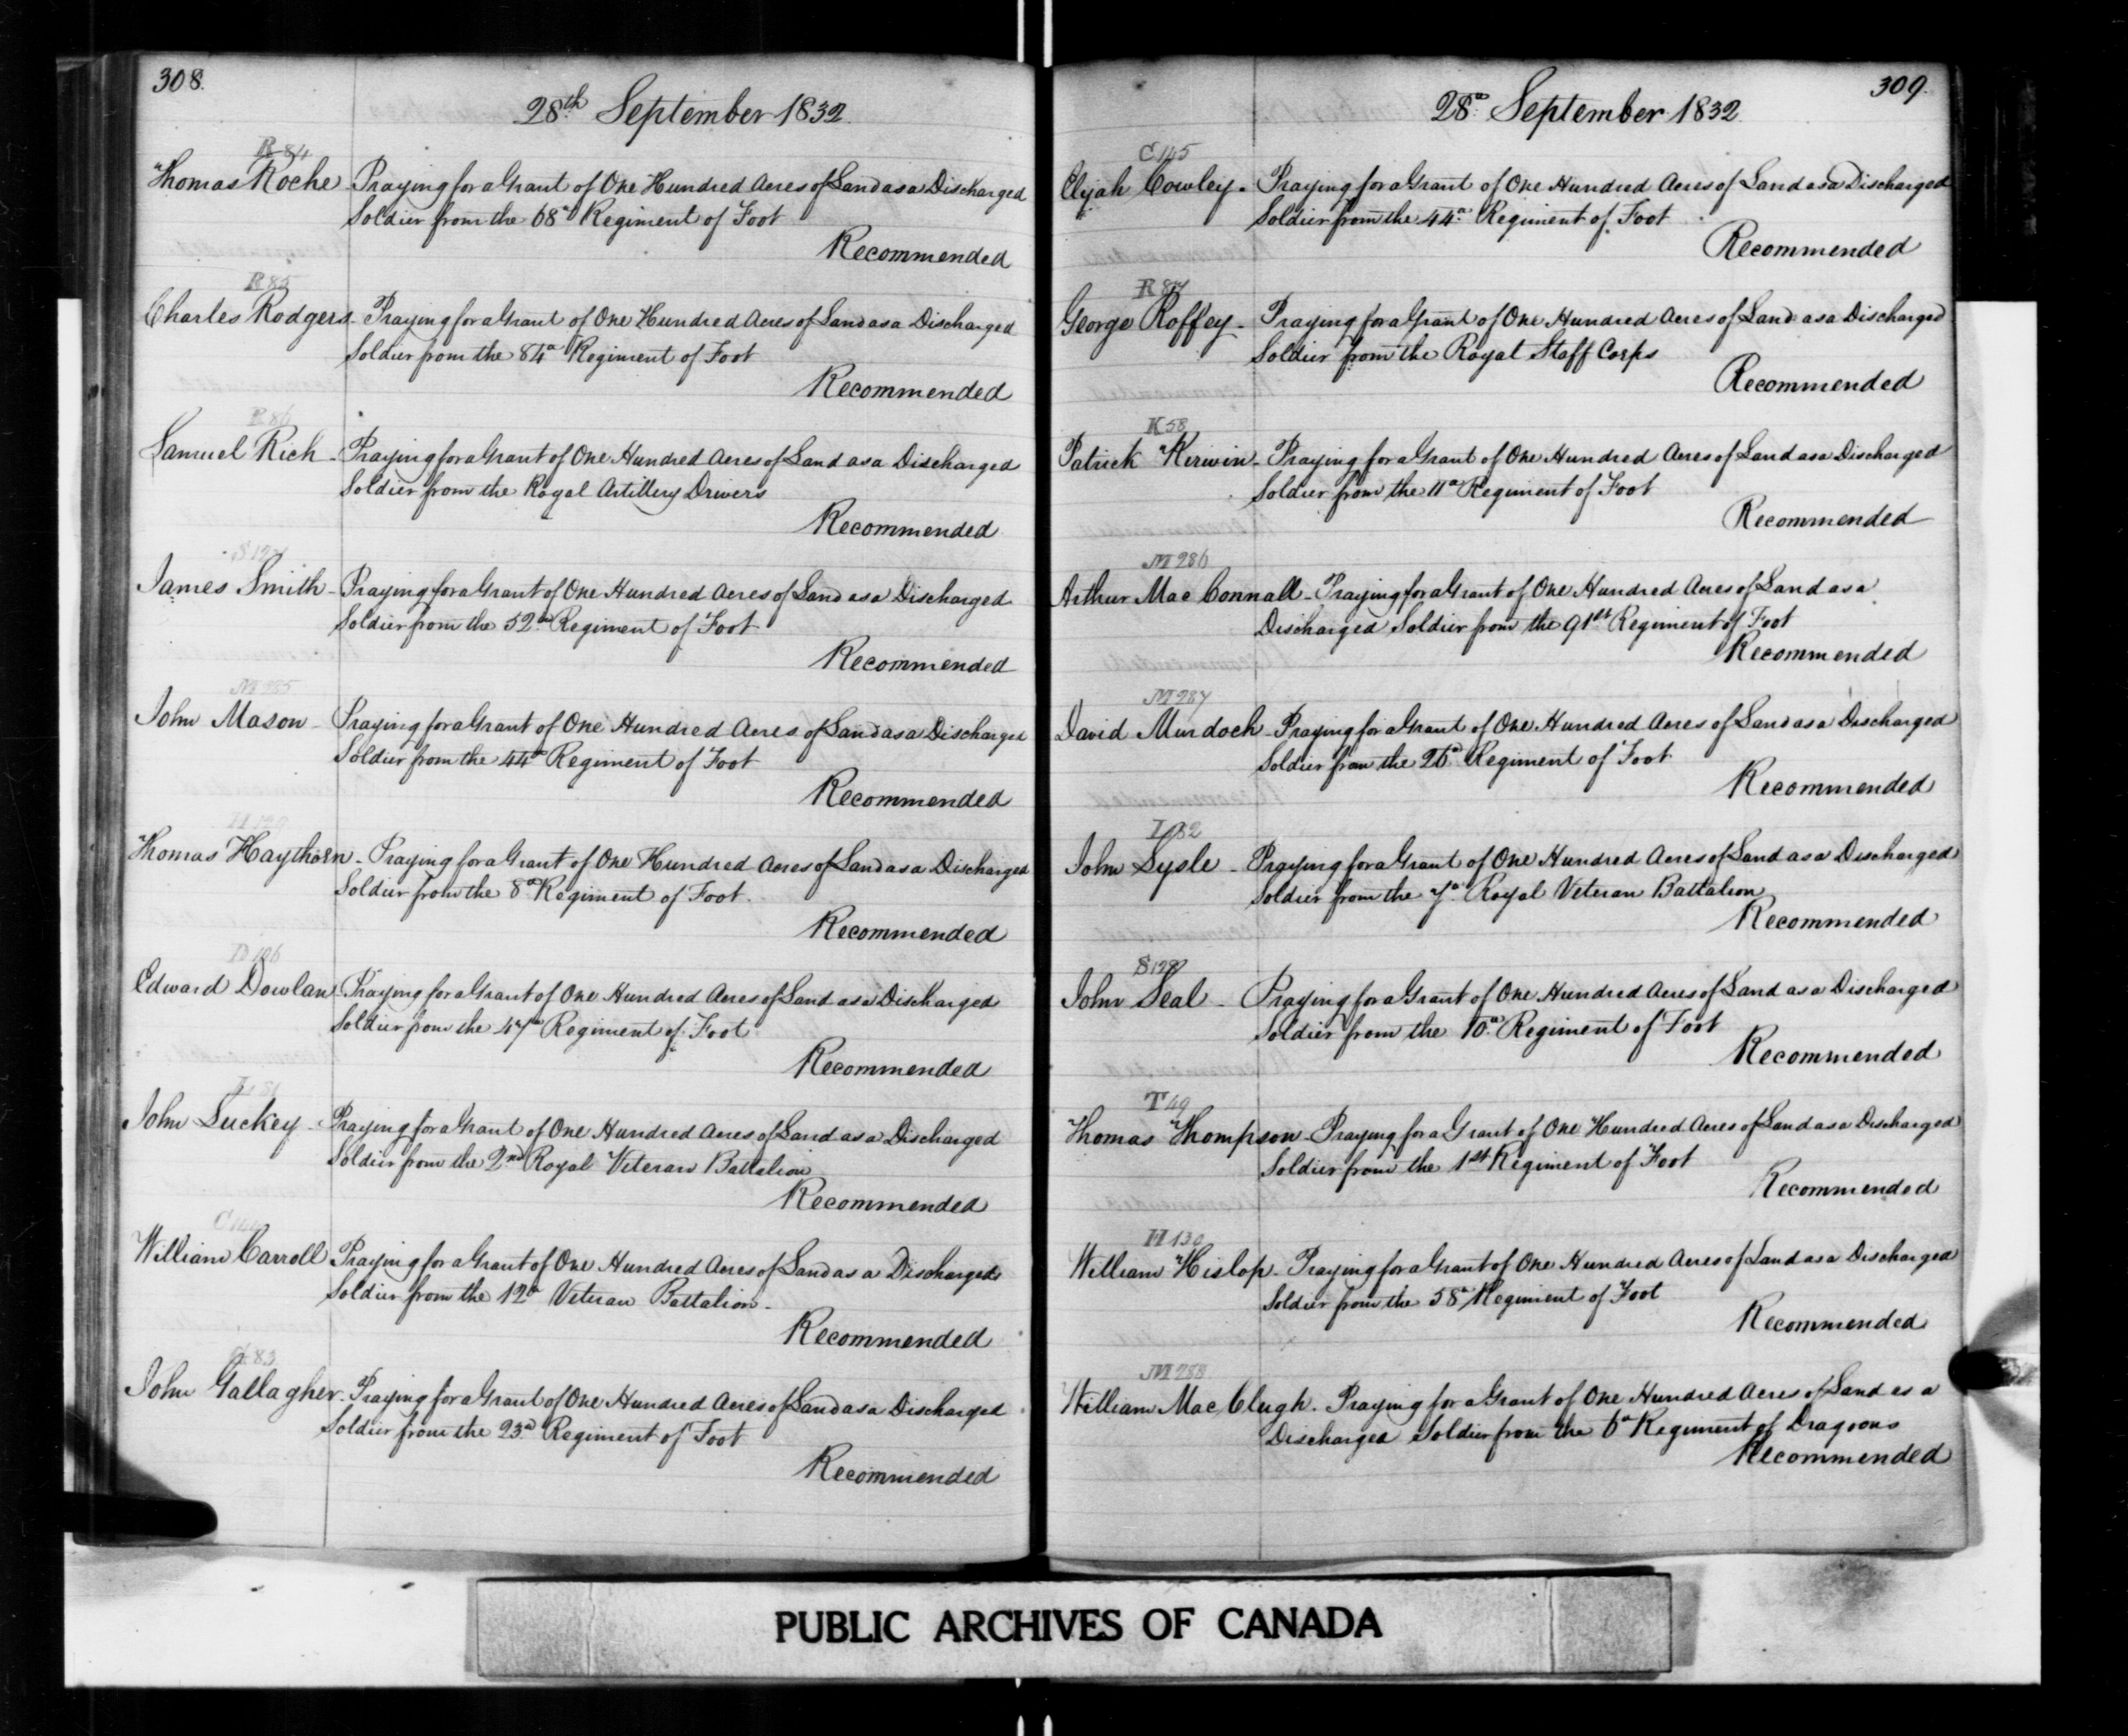 308.
28th September 1832.
R 84
Thomas Roche - Praying for a Grant of One Hundred Acres of Land as a Discharged
Soldier from the 68th Regiment of Foot
Recommended
R 85
Charles Rodgers - Praying for a Grant of One Hundred Acres of Land as a Discharged
Soldier from the 84th Regiment of Foot
Recommended
R 86
Samuel Rich - Praying for a Grant of One Hundred Acres of Land as a Discharged
Soldier from the Royal Artillery Drivers
Recommended
James Smith - Praying for a Grant of One Hundred Acres of Land as a Discharged
Soldier from the 52nd Regiment of Foot
Recommended
M 285
John Mason - Praying for a Grant of One Hundred Acres of Land as a Discharged
Soldier from the 44th Regiment of Foot
Recommended
Thomas Haythorn - Praying for a Grant of One Hundred Acres of Land as a Discharged
Soldier from the 8th Regiment of Foot.
Recommended
D 106
Edward Dowlan - Praying for a Grant of One Hundred Acres of Land as a Discharged
Soldier from the 47th Regiment of Foot
Recommended
L 81
John Luckey - Praying for a Grant of One Hundred Acres of Land as a Discharged
Soldier from the 2nd Royal Veteran Battalion
Recommended
C 144
William Carroll - Praying for a Grant of One Hundred Acres of Land as a Discharged
Soldier from the 12th Veteran Battalion -
Recommended
83
John Gallagher - Praying for a Grant of One Hundred Acres of Land as a Discharged
Soldier from the 23rd Regiment of Foot
Recommended
309.
28th September 1832.
C 145
Elijah Cowley - Praying for a Grant of One Hundred Acres of Land as a Discharged
Soldier from the 44th Regiment of Foot
Recommended
R 87
George Roffey - Praying for a Grant of One Hundred Acres of Land as a Discharged
Soldier from the Royal Staff Corps
Recommended
K 58
Patrick Kerwin - Praying for a Grant of One Hundred Acres of Land as a Discharged
Soldier from the 11th Regiment of Foot
Recommended
M 286
Arthur Mac Connall - Praying for a Grant of One Hundred Acres of Land as a
Discharged Soldier from the 91st Regiment of Foot
Recommended
M 287
David Murdoch - Praying for a Grant of One Hundred Acres of Land as a Discharged
Soldier from the 26th Regiment of Foot
Recommended
L 82
John Lysle - Praying for a Grant of One Hundred Acres of Land as a Discharged
Soldier from the 7th Royal Veteran Battalion
Recommended
S 128
John Seal - Praying for a Grant of One Hundred Acres of Land as a Discharged
Soldier from the 10th Regiment of Foot
Recommended
T 49
Thomas Thompson - Praying for a Grant of One Hundred Acres of Land as a Discharged
Soldier from the 1st Regiment of Foot
Recommended
H 130
William Hislop - Praying for a Grant of One Hundred Acres of Land as a Discharged
Soldier from the 58th Regiment of Foot
Recommended
M 288
William Mac Clugh - Praying for a Grant of One Hundred Acres of Land as a
Discharged Soldier from the 6th Regiment of Dragoons
Recommended
PUBLIC ARCHIVES OF CANADA